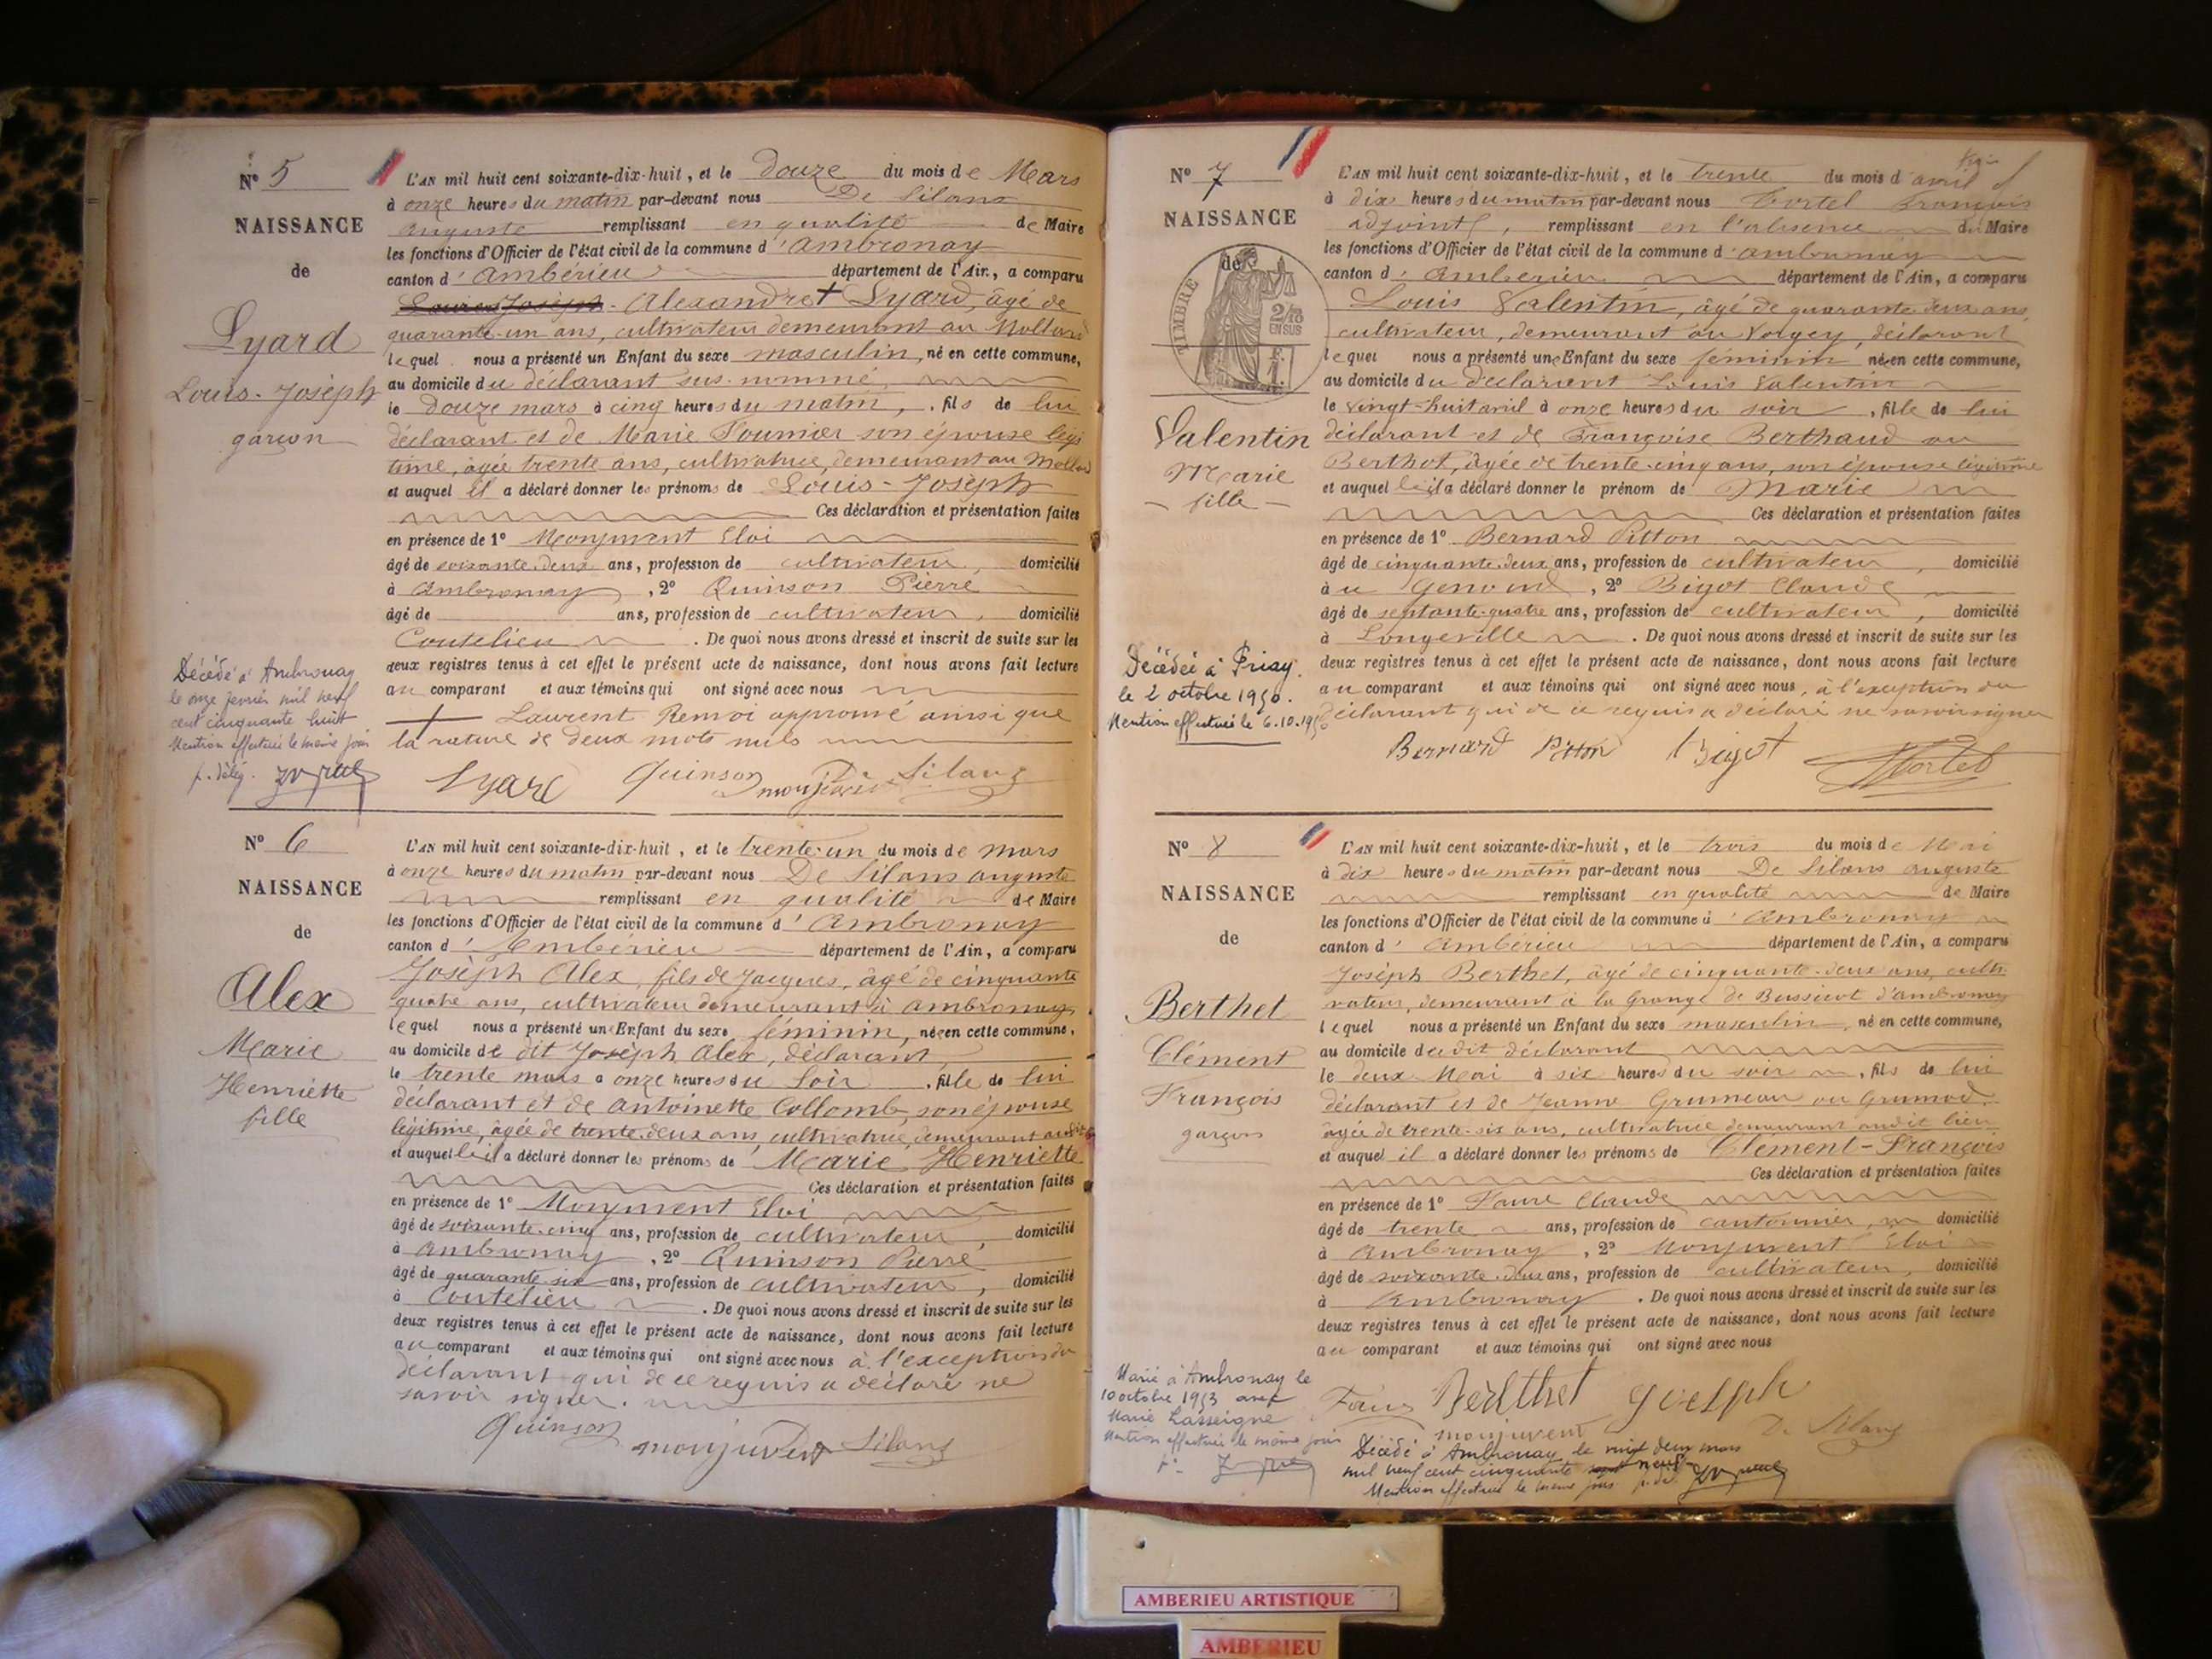 N° 5
NAISSANCE
de
Lyard
Louis-Joseph
garçon
L'AN mil huit cent soixante-dix-huit, et le douze du mois de Mars
à onze heures du matin par-devant nous De Silans
Auguste remplissant en qualité de Maire
les fonctions d'Officier de l'état civil de la commune d'Ambronay
canton d'Ambérieu département de l'Ain, a comparu
Louis Joseph Alexandre + Lyard, âgé de
quarante-un ans, cultivateur demeurant au Mollard
lequel nous a présenté un Enfant du sexe masculin, né en cette commune,
au domicile du déclarant sus-nommé,
le douze mars à cinq heures du matin, fils de lui
déclarant et de Marie Fournier son épouse légi
time, âgée trente ans, cultivatrice, demeurant au Mollard
et auquel il a déclaré donner les prénoms de Louis-Joseph
Ces déclaration et présentation faites
en présence de 1° Monjuvent Eloi
âgé de soixante-deux ans, profession de cultivateur, domicilié
à Ambronay, 2° Quinson Pierre
âgé de ans, profession de cultivateur, domicilié
Coutelieu. De quoi nous avons dressé et inscrit de suite sur les
deux registres tenus à cet effet le présent acte de naissance, dont nous avons fait lecture
au comparant et aux témoins qui ont signé avec nous
+ Laurent Renvoi approuvé ainsi que
la rature de deux mots nuls
Lyard Quinson monjuvent De Silans
Décédé à Ambronay
le onze février mil neuf
cent cinquante huit
Mention effectuée le même jour
p. délég.
N° 6
NAISSANCE
de
Alex
Marie
Henriette
fille
L'AN mil huit cent soixante-dix-huit, et le trente-un du mois de mars
à onze heures du matin par-devant nous De Silans auguste
remplissant en qualité de Maire
les fonctions d'Officier de l'état civil de la commune d'Ambronay
canton d'Ambérieu département de l'Ain, a comparu
Joseph Alex, fils de Jacques, âgé de cinquante
quatre ans, cultivateur demeurant à Ambronay
lequel nous a présenté une Enfant du sexe féminin, née en cette commune,
au domicile de dit Joseph Alex, déclarant
le trente mars à onze heures du soir, fille de lui
déclarant et de Antoinette Collomb, son épouse
légitime, âgée de trente-deux ans, cultivatrice, demeurant audit
et auquel il a déclaré donner les prénoms de Marie Henriette
Ces déclaration et présentation faites
en présence de 1° Monjuvent Eloi
âgé de soixante-cinq ans, profession de cultivateur, domicilié
à Ambronay, 2° Quinson Pierre
âgé de quarante-six ans, profession de cultivateur, domicilié
à Coutelieu. De quoi nous avons dressé et inscrit de suite sur les
deux registres tenus à cet effet le présent acte de naissance, dont nous avons fait lecture
au comparant et aux témoins qui ont signé avec nous à l'exception du
déclarant qui de ce requis a déclaré ne
savoir signer.
Quinson monjuvent Silans
N° 7
NAISSANCE
de
TIMBRE
2/10
EN SUS
Valentin
Marie
fille
L'AN mil huit cent soixante-dix-huit, et le trente du mois d'avril
à dix heures du matin par-devant nous Tortel François
adjoint, remplissant en l'absence du Maire
les fonctions d'Officier de l'état civil de la commune d'ambronay
canton d'Ambérieu département de l'Ain, a comparu
Louis Valentin, âgé de quarante-deux ans,
cultivateur, demeurant au Vorgey, déclarant
lequel nous a présenté une Enfant du sexe féminin née en cette commune,
au domicile du déclarant Louis Valentin
le vingt-huit avril à onze heures du soir, fille de lui
déclarant et de Françoise Berthaud ou
Berthot, âgée de trente-cinq ans, son épouse légitime
et auquel il a déclaré donner le prénom de Marie
Ces déclaration et présentation faites
en présence de 1° Bernard Pitton
âgé de cinquante-deux ans, profession de cultivateur, domicilié
au Genoud, 2° Bigot Claude
âgé de septante-quatre ans, profession de cultivateur, domicilié
à Longeville. De quoi nous avons dressé et inscrit de suite sur les
deux registres tenus à cet effet le présent acte de naissance, dont nous avons fait lecture
au comparant et aux témoins qui ont signé avec nous, à l'exception du
déclarant qui de ce requis a déclaré ne savoir signer
Bernard Pitton Bigot Tortel
Décédée à Priay
le 2 octobre 1950.
Mention effectuée le 6.10.1950
N° 8
NAISSANCE
de
Berthet
Clément
François
garçon
L'AN mil huit cent soixante-dix-huit, et le trois du mois de Mai
à dix heures du matin par-devant nous De Silans auguste
remplissant en qualité de Maire
les fonctions d'Officier de l'état civil de la commune d'Ambronay
canton d'Ambérieu département de l'Ain, a comparu
Joseph Berthet, âgé de cinquante-deux ans, culti
vateur, demeurant à la Grange de Bussiwot d'ambronay
lequel nous a présenté un Enfant du sexe masculin, né en cette commune,
au domicile du dit déclarant
le deux Mai à six heures du soir, fils de lui
déclarant et de Jeanne Grumeau ou Grumod
âgée de trente-six ans, cultivatrice demeurant audit lieu
et auquel il a déclaré donner les prénoms de Clément-François
Ces déclaration et présentation faites
en présence de 1° Faure Claude
âgé de trente ans, profession de cantonnier, domicilié
à Ambronay, 2° Monjuvent Eloi
âgé de soixante-deux ans, profession de cultivateur, domicilié
à Ambronay. De quoi nous avons dressé et inscrit de suite sur les
deux registres tenus à cet effet le présent acte de naissance, dont nous avons fait lecture
au comparant et aux témoins qui ont signé avec nous
Berthet Joseph
monjuvent De Silans
Marié à Ambronay le
10 octobre 1953 avec
Marie Lasseigne
Mention effectuée le même jour
Décédé à Ambronay le vingt deux mars
mil neuf cent cinquante neuf
Mention effectuée le même jour p. del.
AMBERIEU ARTISTIQUE
AMBERIEU